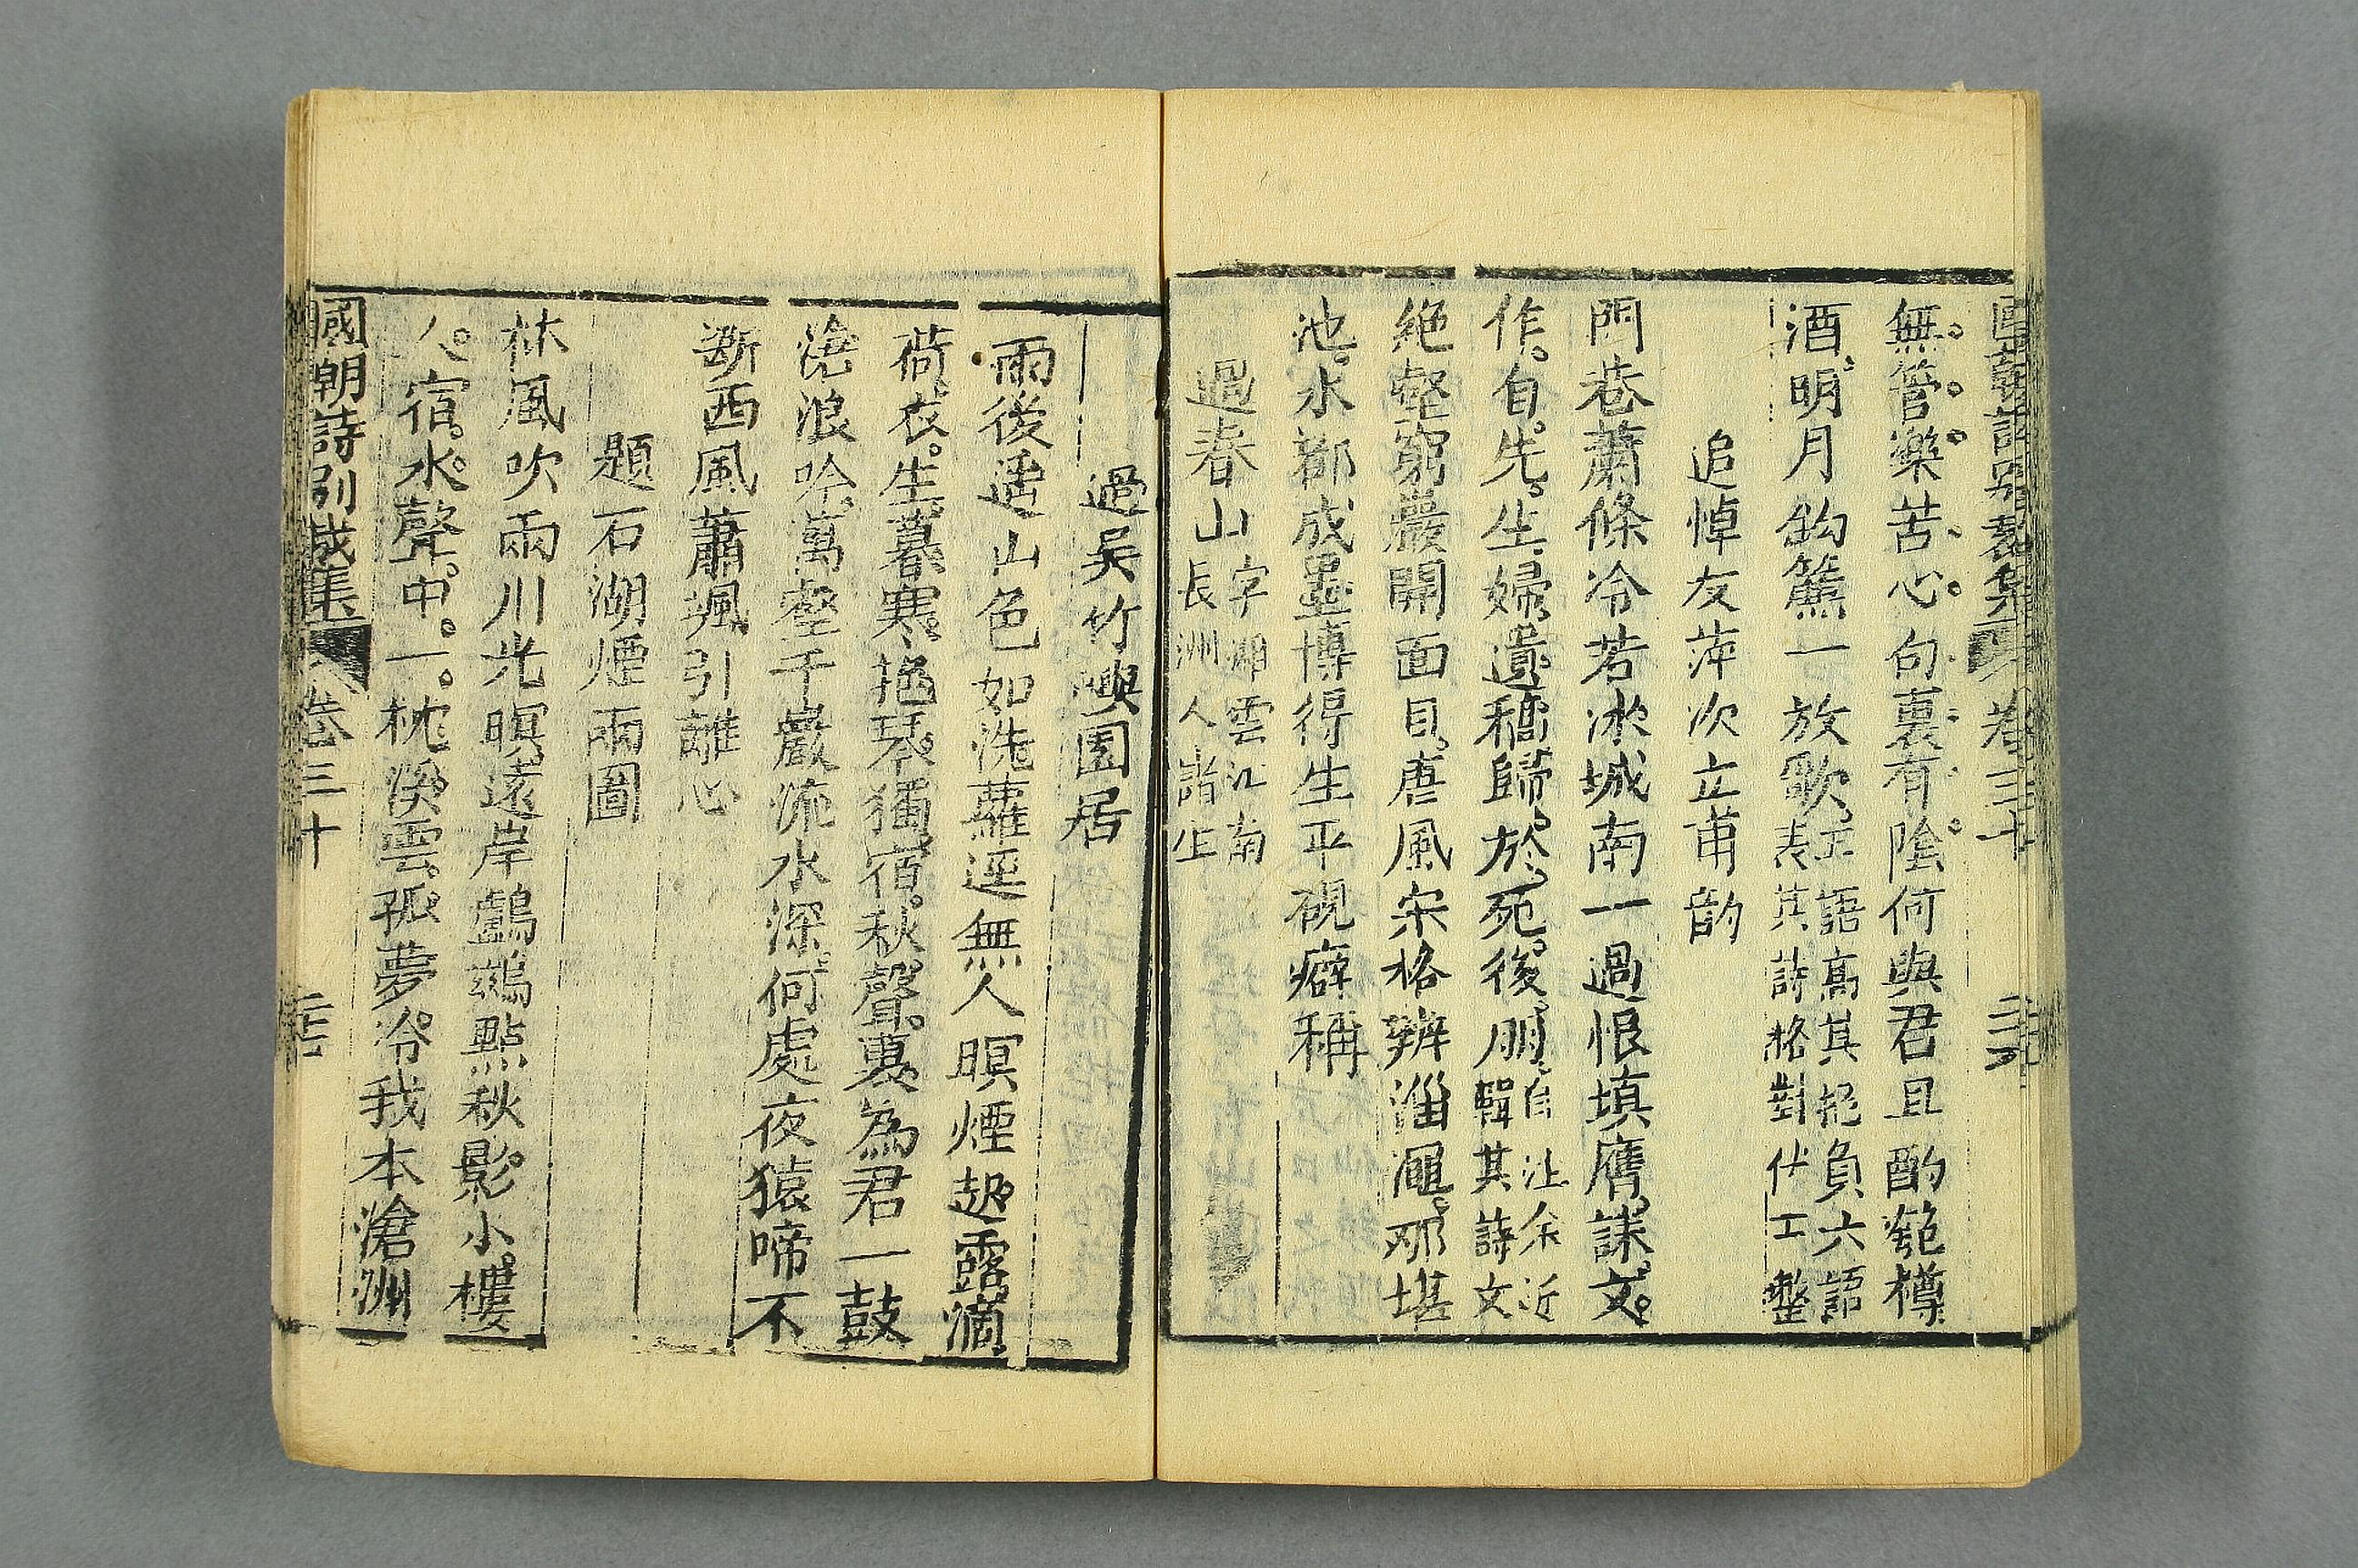 國朝詩別裁集 卷三十
無管樂苦心句裏有陰何與君且酌匏樽
酒明月鈎簾一放歌五語高其抱負六語
表其詩格對仗工整
追悼友萍次立甫韵
門巷蕭條冷若冰城南一過恨填膺誄文
作自先生婦遺稿歸於死後朋自注余近
輯其詩文
絕壑窮巖開面目唐風宋格辨淄澠那堪
池水都成墨博得生平硯癖稱
過春山字湘雲江南
長洲人諸生
過吳竹嶼園居
雨後遥山色如洗蘿逕無人暝煙起露滴
荷衣生暮寒抱琴獨宿秋聲裏為君一鼓
滄浪吟萬壑千巖流水深何處夜猿啼不
斷西風蕭颯引離心
題石湖煙雨圖
林風吹雨川光暝遠岸鸕鶿點秋影小樓
人宿水聲中一枕溪雲孤夢冷我本滄洲
國朝詩別裁集 卷三十